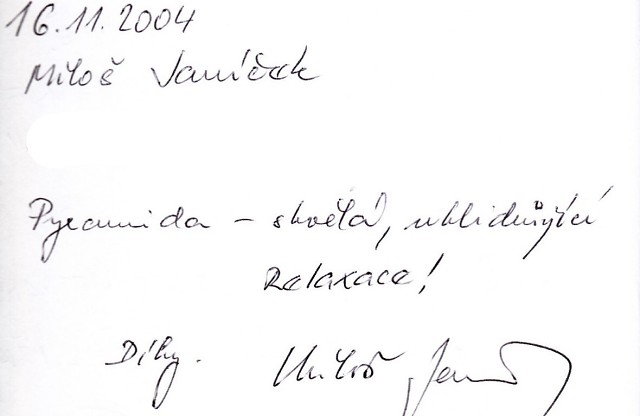 16.11.2004
Miloš Janíček
Pyramida – skvělá, uklidňující
Relaxace!
Díky.
Miloš